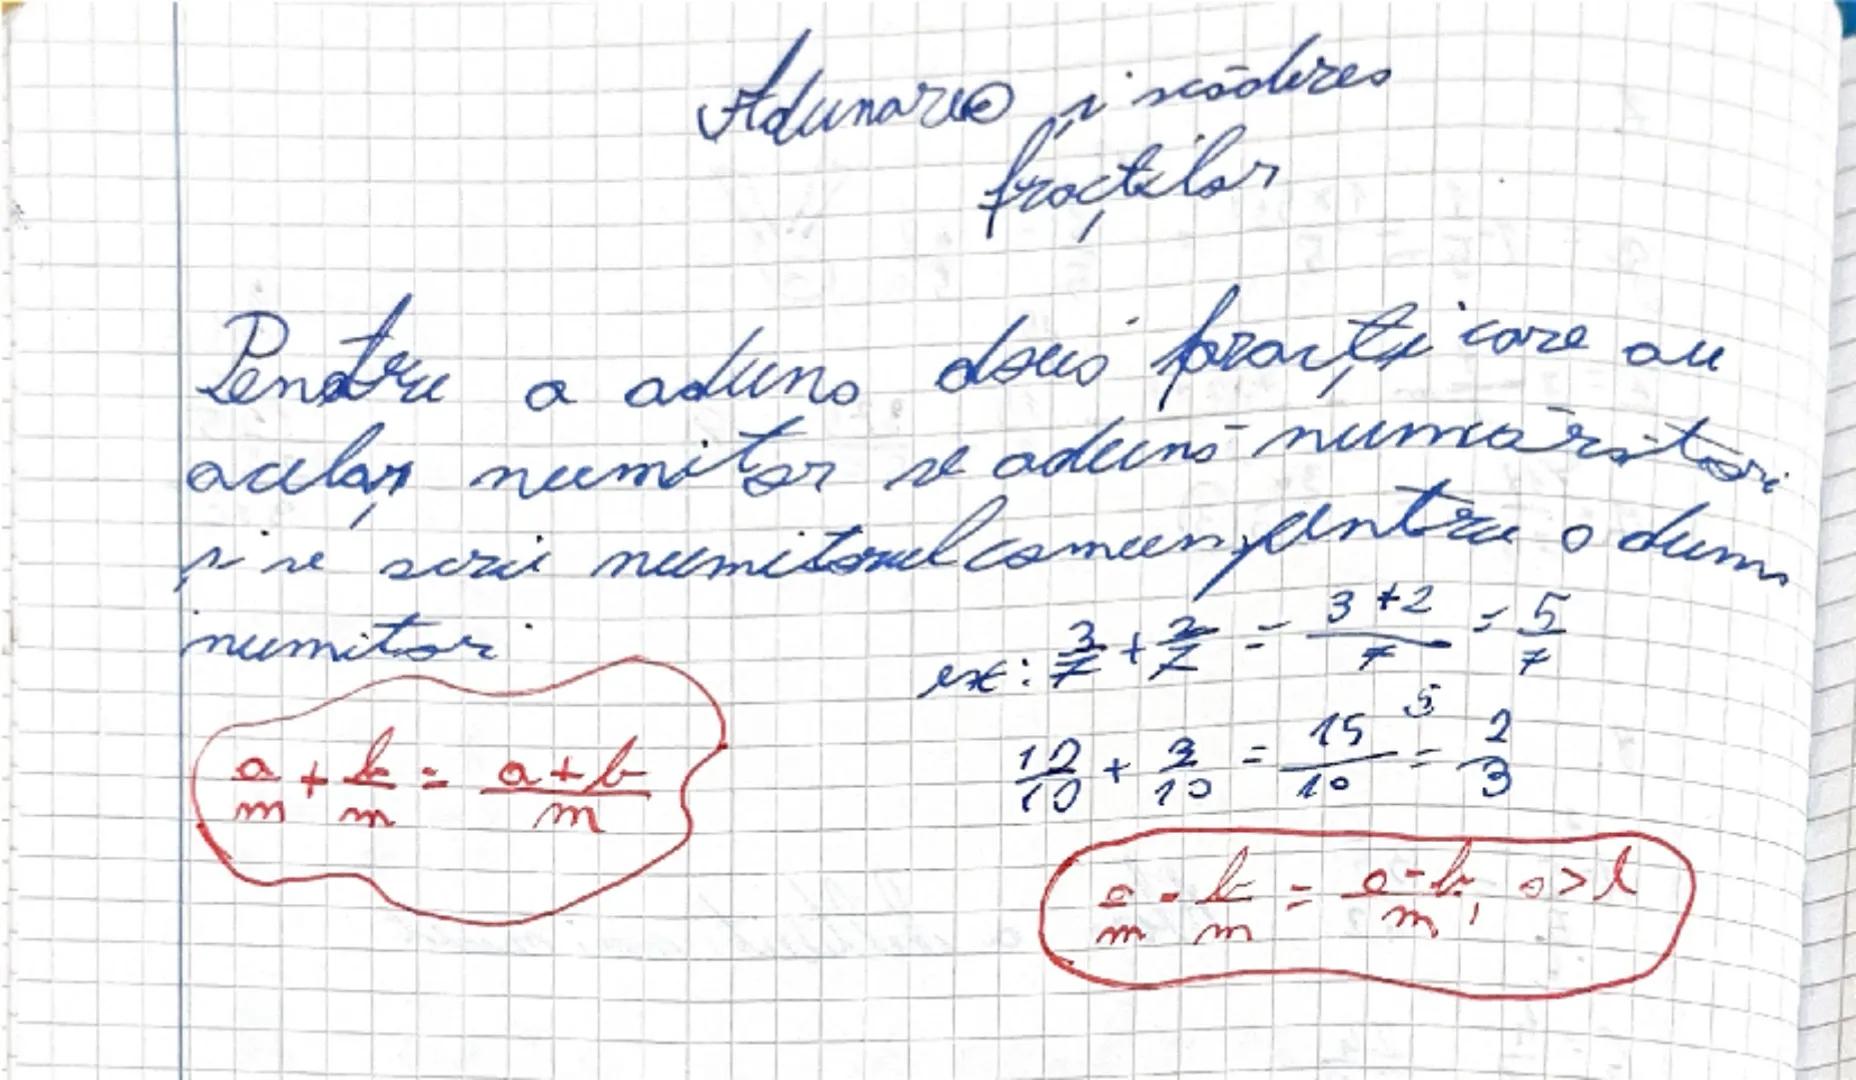 Adunarea și scăderea
fracțiilor
Pentru a aduna două fracții care au
același numitor se adună numărători
și se scrie numitorul comun, pentru o dum
numitor
ex: 3/7 + 2/7 = 3+2/7 = 5/7
12/10 + 3/10 = 15/10 5 = 2/3
a/m + b/m = a+b/m
a/m - b/m = a-b/m, a>b